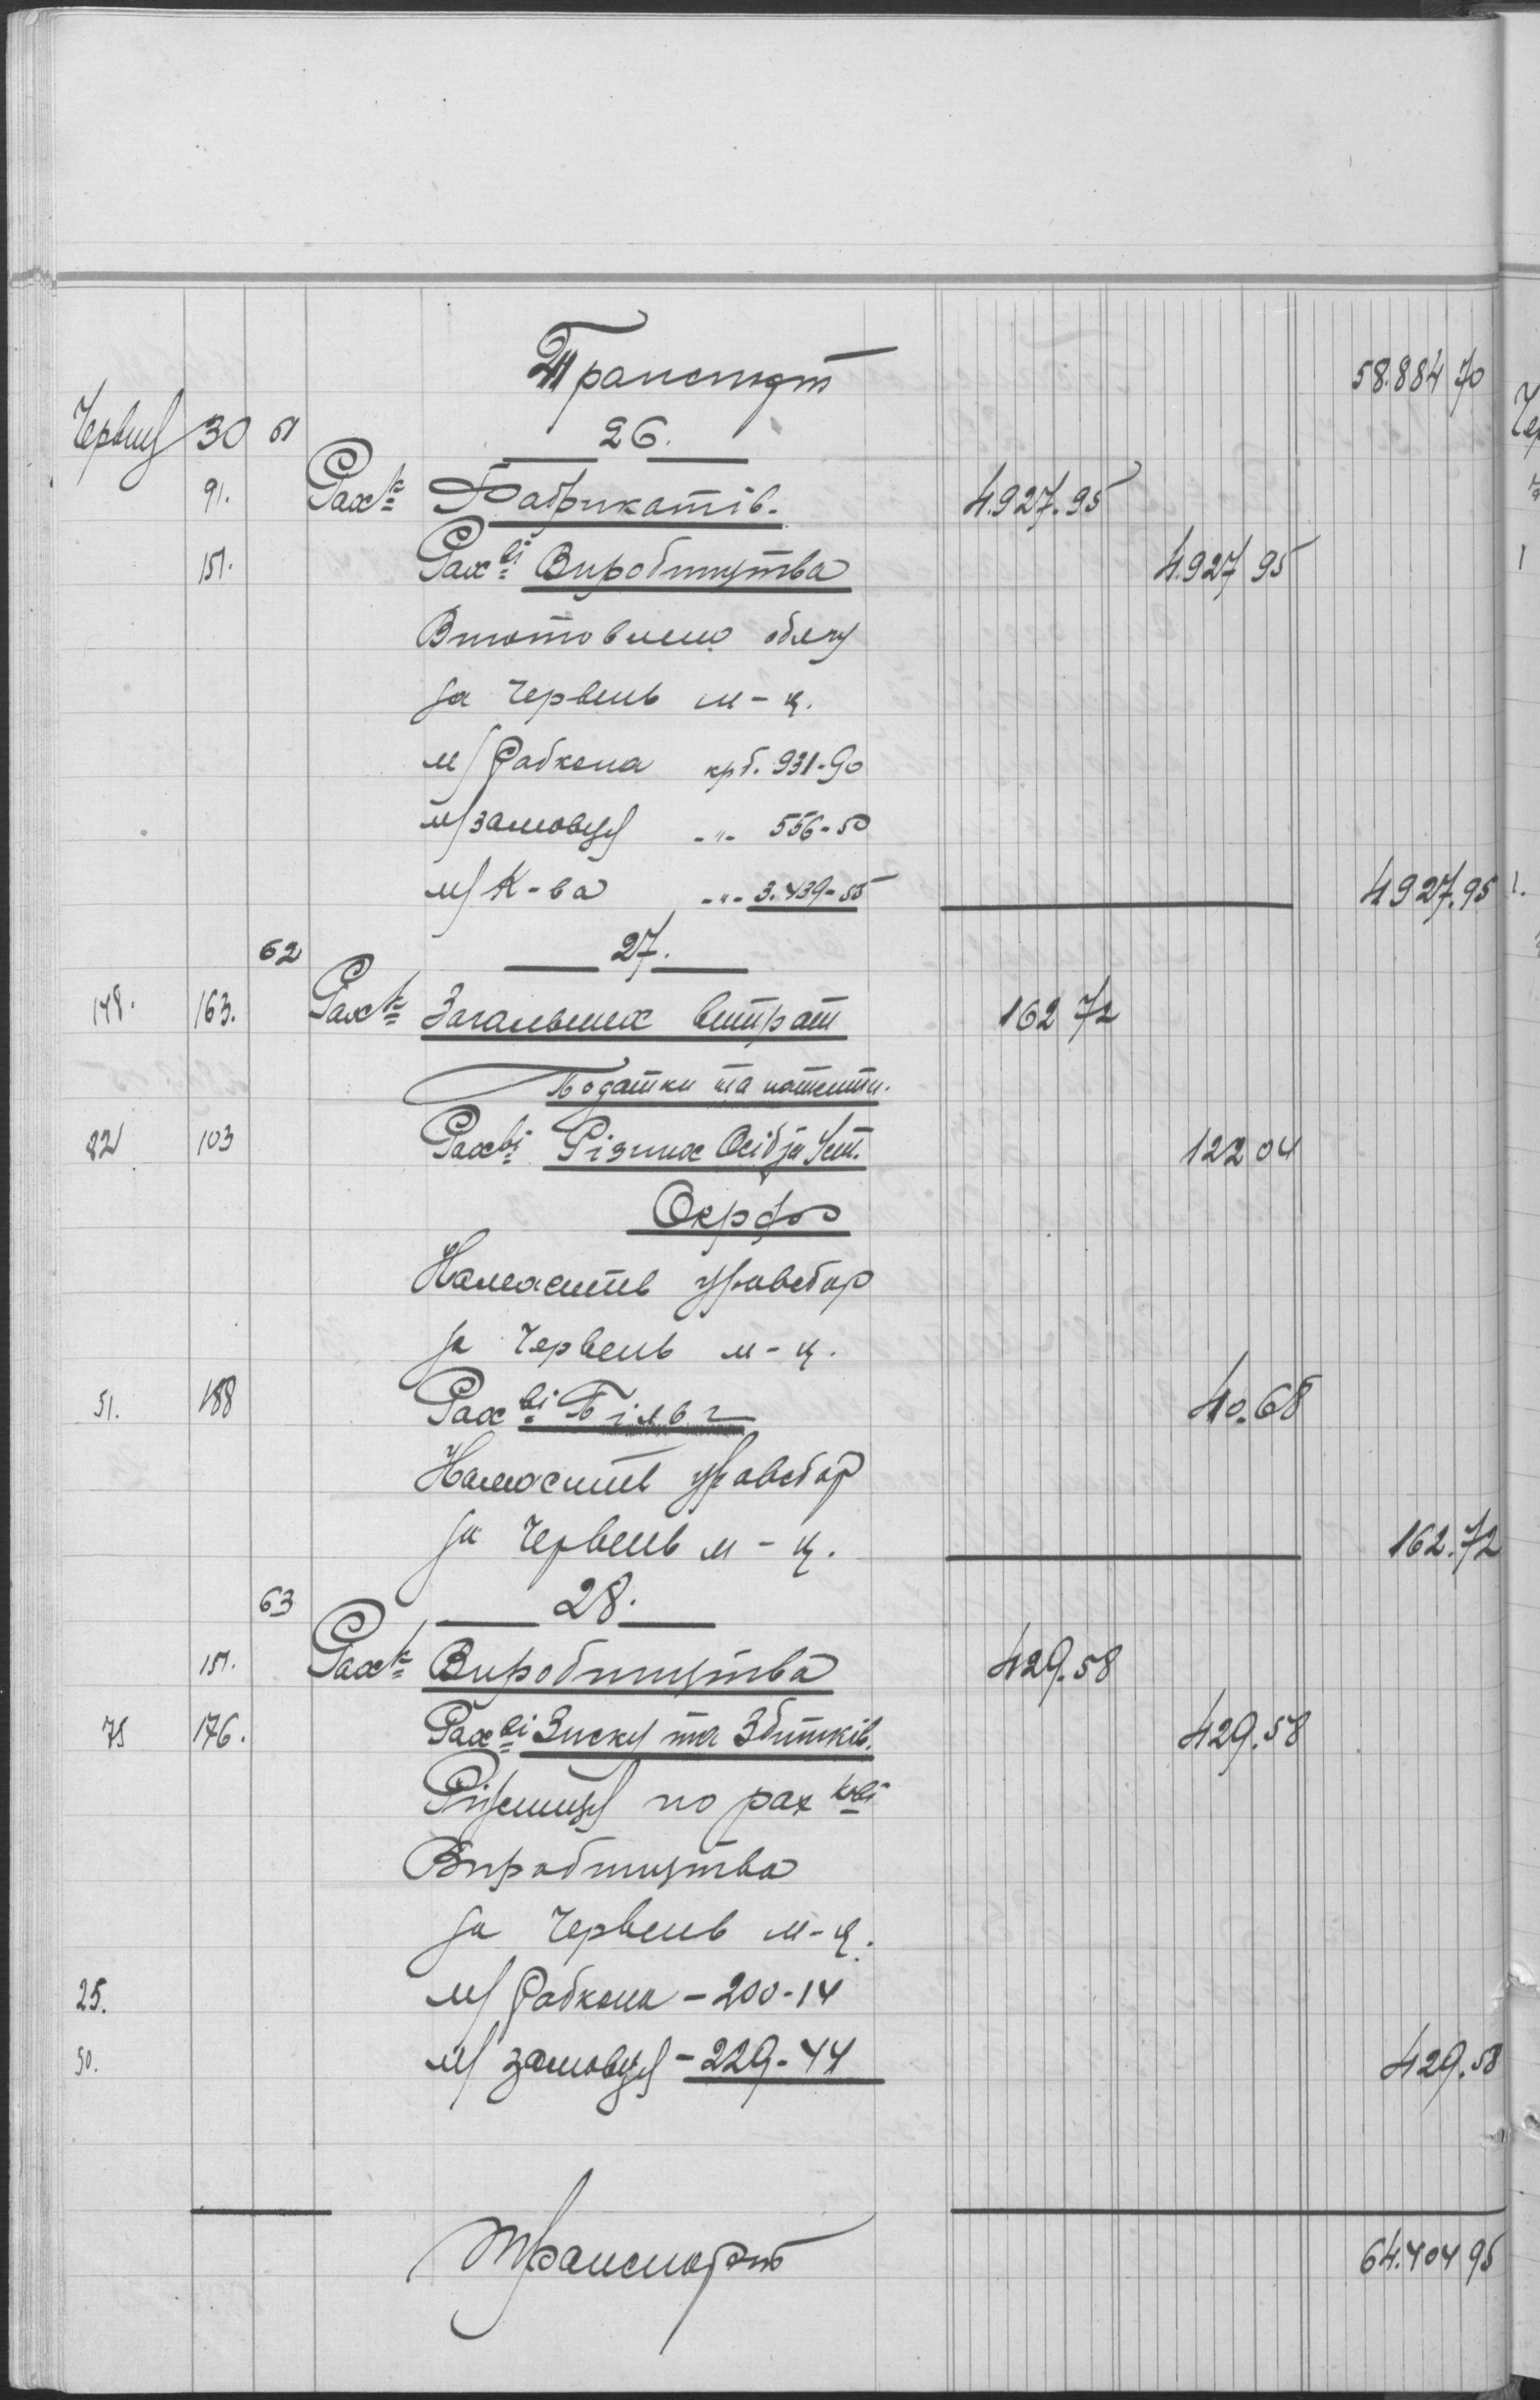 Транспорт 58.884 70
Червня 30 61 26.
91. Рах-к Фабрикатів. 4.927.95
151. Рах-ві Виробництва 4.927 95
Виготовлено
за червень м-ц.
м/Рабкопа крб. 931-90
м/замовця -"- 556-50
м/К-ва -"- 3.439-55 4927.95
62 27.
148. 163. Рах-к Загальних витрат 162 72
Податки та патенти.
22 103 Рах-ві Різних Осіб за Уст. 122 04
Окрфо
Належить зрівсбор
за Червень м-ц.
51. 188 Рах-ві Більг 40.68
Належить зрівсбор
за Червень м-ц. 162.72
63 28.
151. Рах-к Виробництва 429.58
75 176. Рах-ві Зиску та Збитків. 429.58
Ріжниця по рах-кові
Виробництва
за Червень м-ц.
25. м/Рабкопа - 200-14
50. м/замовця - 229-44 429.58
Транспорт 64.404 95